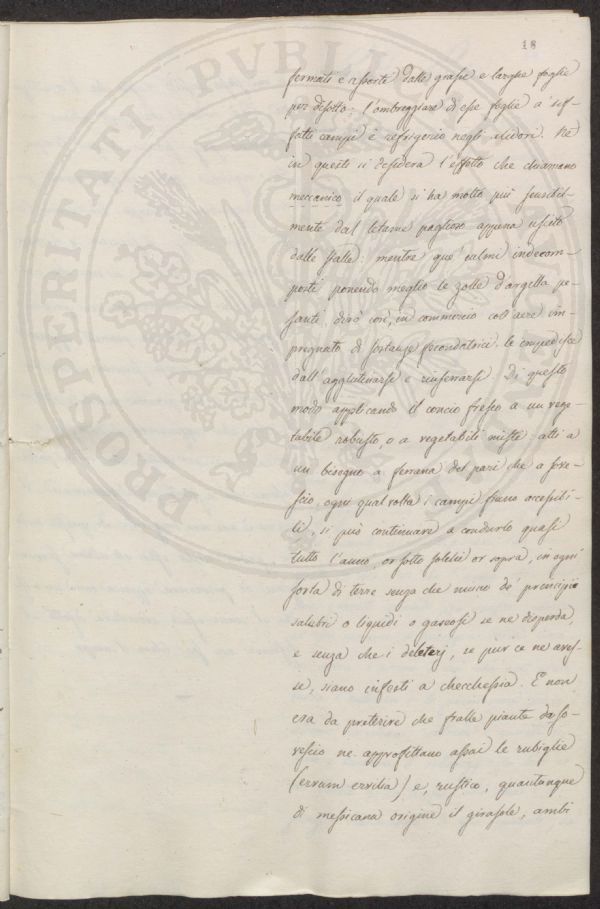 18
fermati e assorti dalle grasse e larghe foglie
per disotto: l'ombreggiare di esse foglie a' sif-
fatti campi è refrigerio negli alidori. Nè
in questi si desidera l'effetto che chiamano
meccanico il quale si ha molto più sensibil-
mente dal letame paglioso appena uscito
dalle stalle: mentre que' culmi indecom-
posti ponendo meglio le zolle d'argilla pe-
santi, dirò così, in commercio coll'aere im-
pregnato di sostanze fecondatrici, le impedisce
dall'agglutinarsi e rinserrarsi. Di questo
modo applicando il concio fresco a un vege-
tabile robusto, o a vegetabili misti atti a
un bisogno a ferrana del pari che a sove-
scio, ogni qual volta i campi siano accessibi-
li, si può continuare a condurlo quasi
tutto l'anno, or sotto solchi or sopra, in ogni
sorta di terre senza che nuno de' principii
salubri o liquidi o gaseosi se ne disperda,
e senza che i deleterj, se pur ce ne aves-
se, siano infesti a checchessia. E non
era da preterire che fralle piante da so-
vescio ne approfittano assai le rubiglie
(ervum ervilia) e, rustico, quantunque
di messicana origine il girasole, ambi
PROSPERITATI PVBLICAE